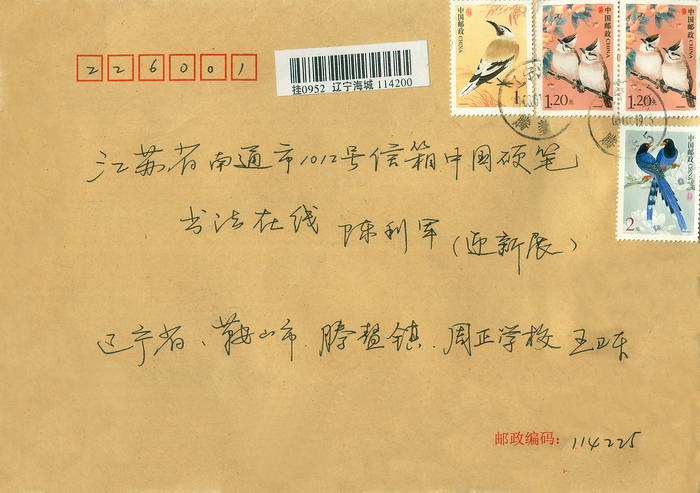 226001
挂0952 辽宁海城 114200
中国邮政 CHINA
中国邮政 CHINA
1.20元
中国邮政 CHINA
1.20元
中国邮政 CHINA
2元
江苏省南通市1012号信箱中国硬笔
书法在线 陈利军(迎新展)
辽宁省、鞍山市.腾鳌镇.周正学校 王卫东
邮政编码: 114225